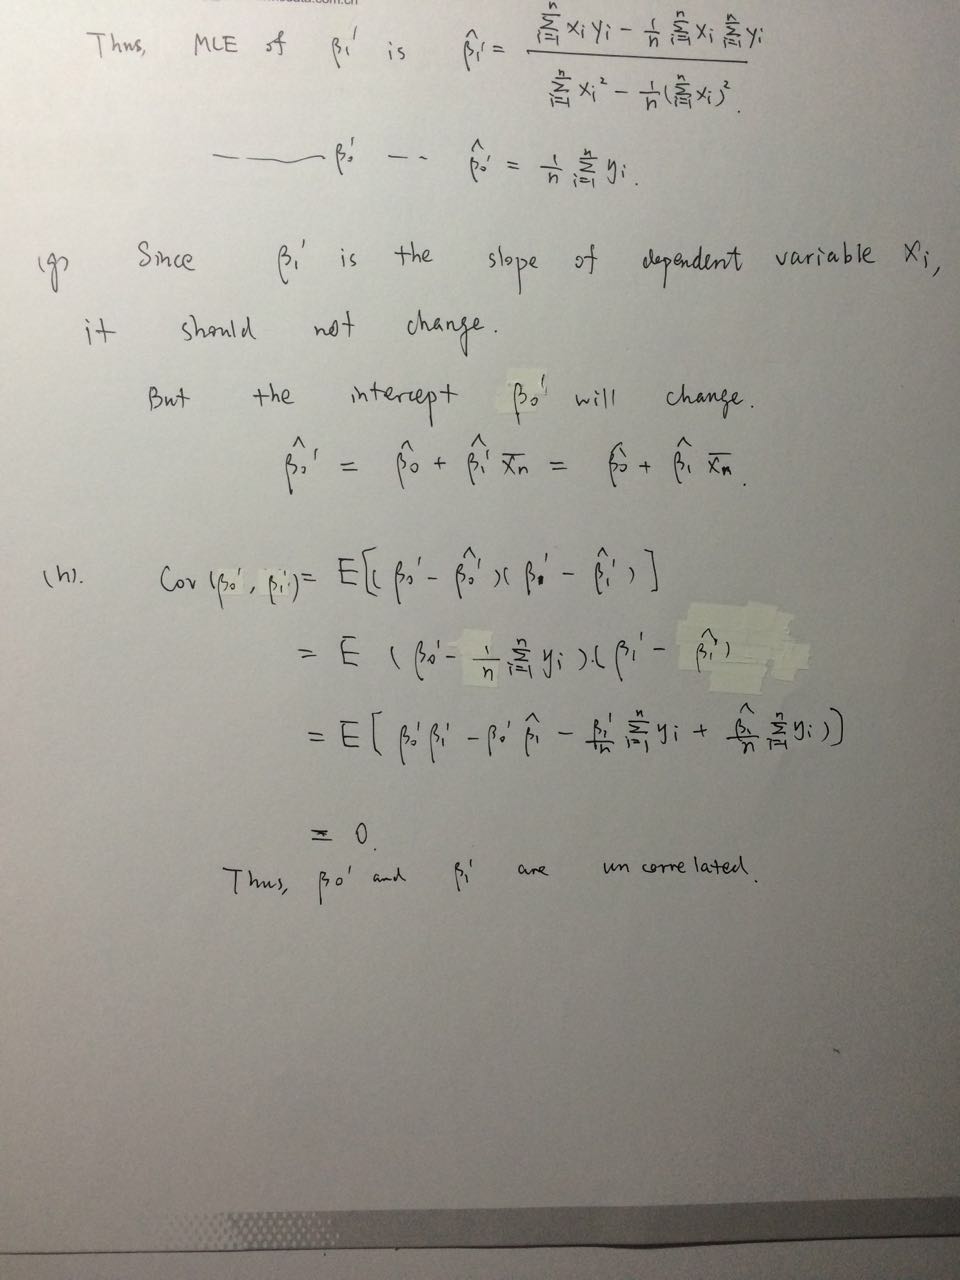 Thus, MLE of β₁' is β̂₁' = (Σᵢ₌₁ⁿ xᵢyᵢ − 1/n Σᵢ₌₁ⁿ xᵢ Σᵢ₌₁ⁿ yᵢ) / (Σᵢ₌₁ⁿ xᵢ² − 1/n (Σᵢ₌₁ⁿ xᵢ)²).
—— β₀' -- β̂₀' = 1/n Σᵢ₌₁ⁿ yᵢ.
(g) Since β₁' is the slope of dependent variable Xᵢ,
it should not change.
But the intercept β₀' will change.
β̂₀' = β̂₀ + β̂₁' x̄ₙ = β̂₀ + β̂₁ x̄ₙ.
(h). Cov(β₀', β₁') = E[(β₀' − β̂₀')(β₁' − β̂₁')]
= E (β₀' − 1/n Σᵢ₌₁ⁿ yᵢ)·(β₁' − β̂₁')
= E[β₀'β₁' − β₀' β̂₁ − β₁'/n Σᵢ₌₁ⁿ yᵢ + β̂₁/n Σᵢ₌₁ⁿ yᵢ)]
= 0.
Thus, β₀' and β₁' are uncorrelated.